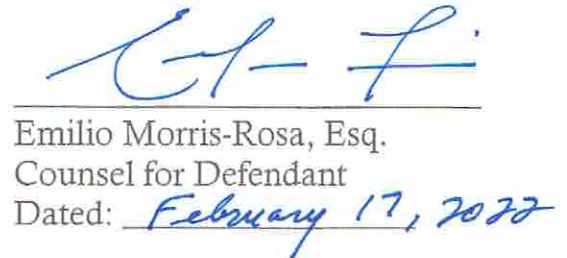 Emilio Morris-Rosa, Esq.
Counsel for Defendant
Dated: February 17, 2022